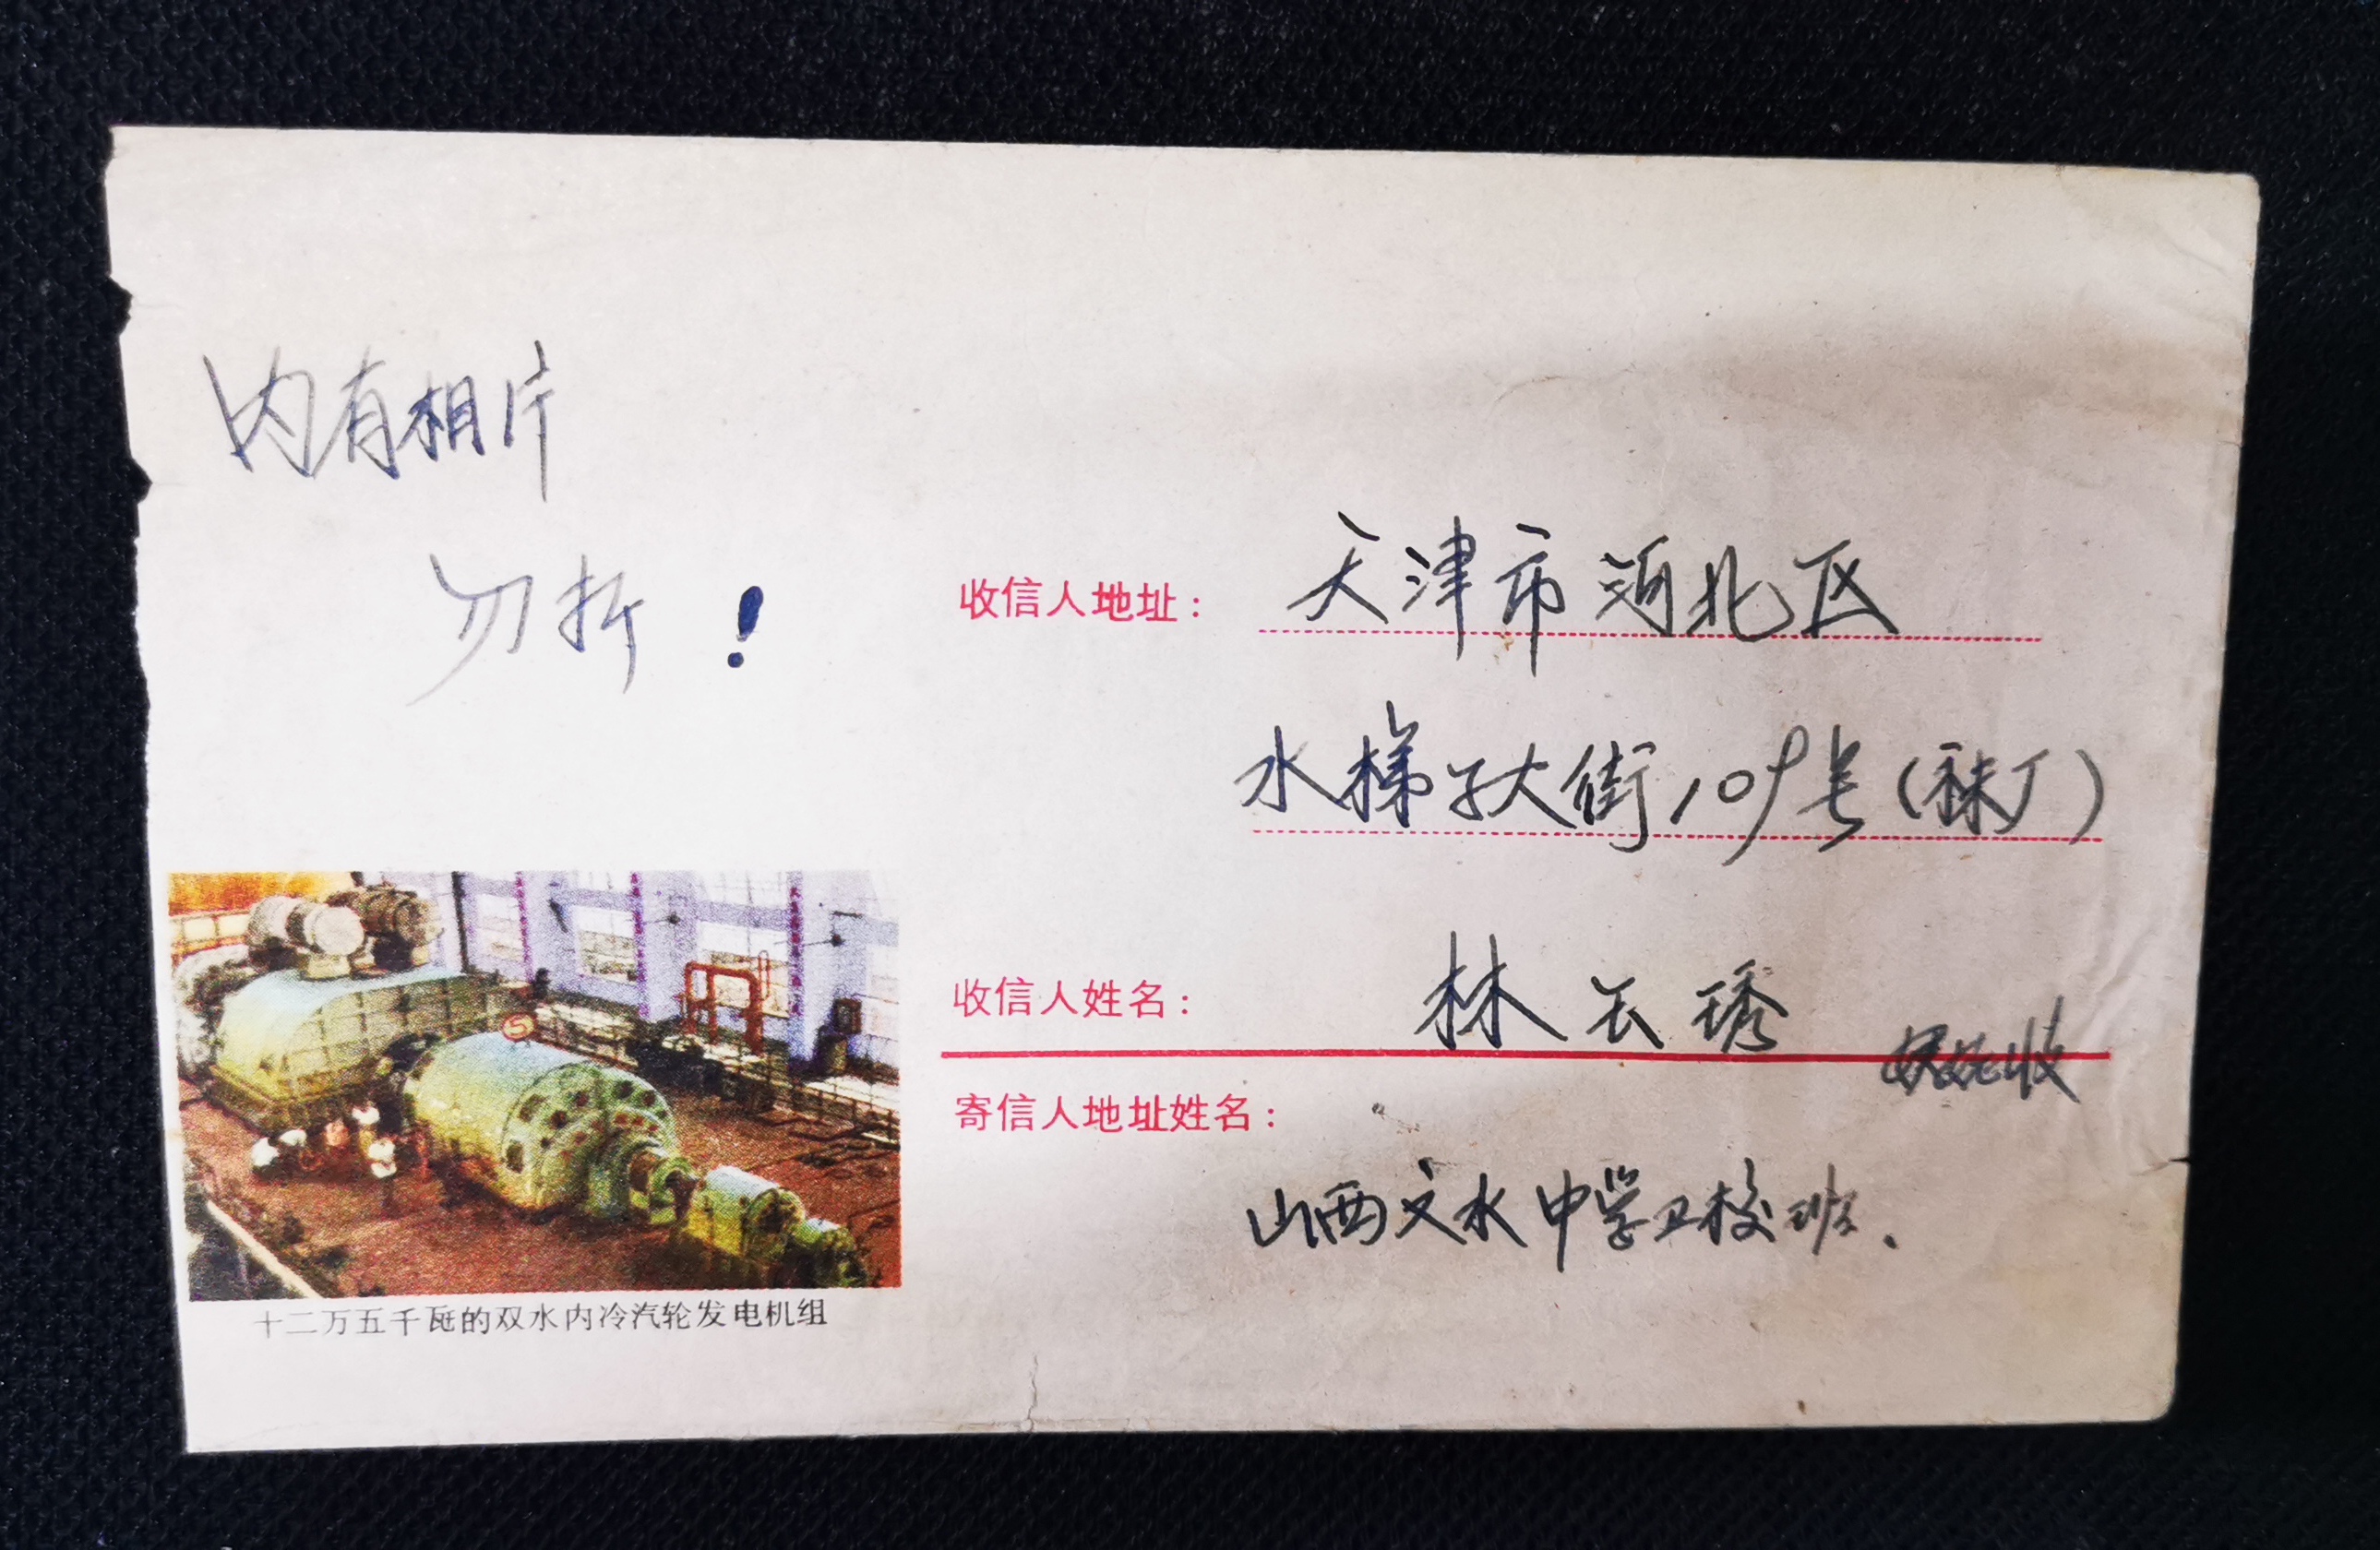 内有相片
勿折！
收信人地址：天津市河北区
水梯子大街109号（袜厂）
收信人姓名：林云琇
收
寄信人地址姓名：
山西文水中学卫校班.
十二万五千瓩的双水内冷汽轮发电机组